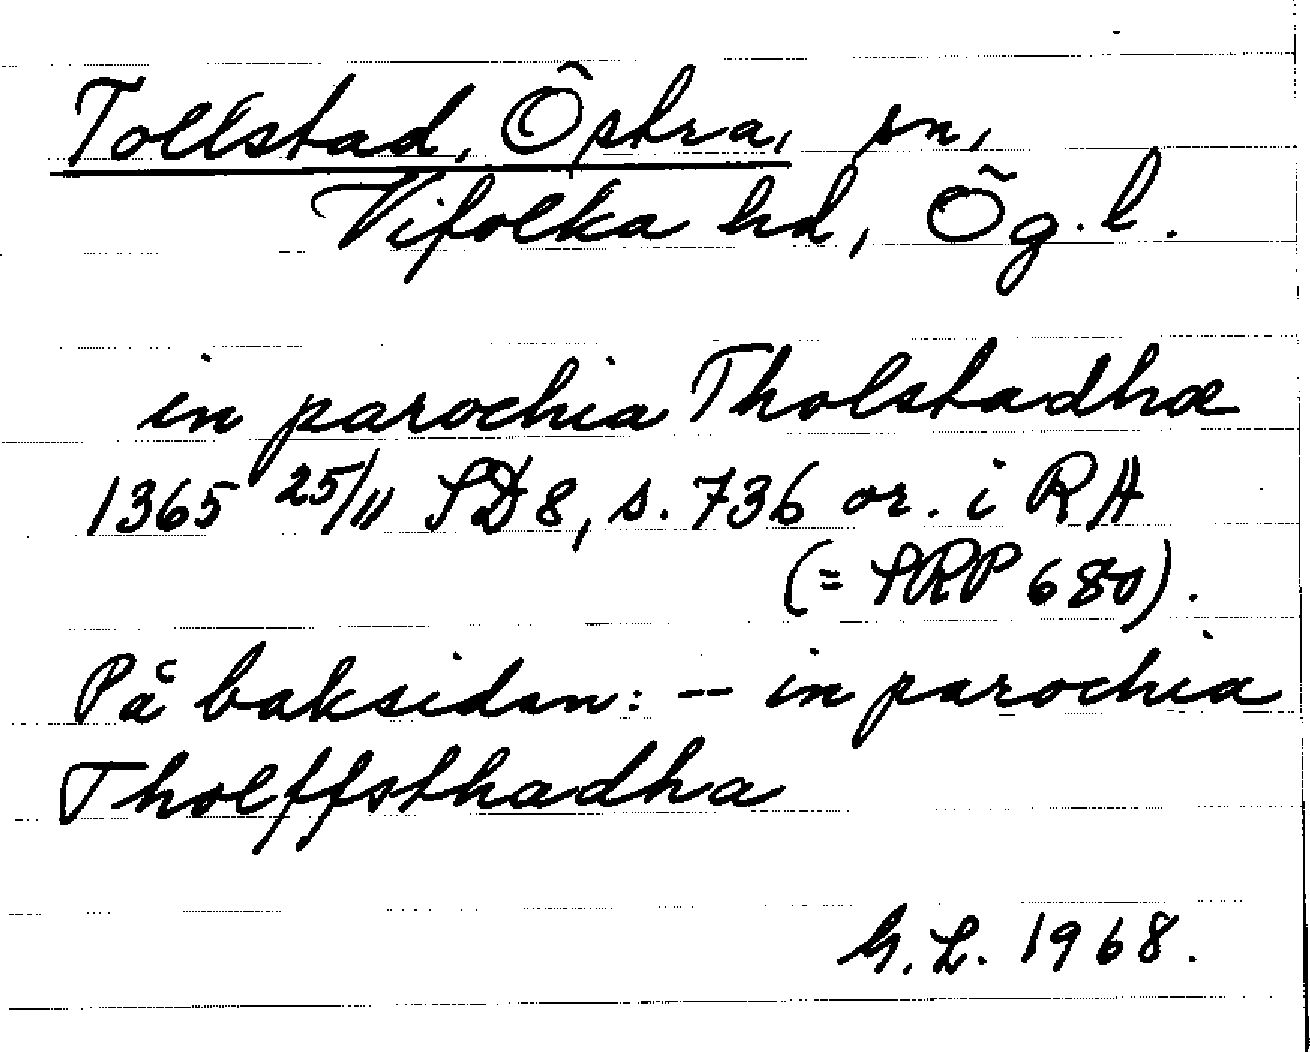 Tollstad, Östra, sn,
Vifolka hd, Ög. l.
in parochia Tholstadhæ
1365 25/11 SD 8, s. 736 or. i RA
(= SRP 680).
På baksidan: -- in parochia
Tholffsthadha
G. L. 1968.